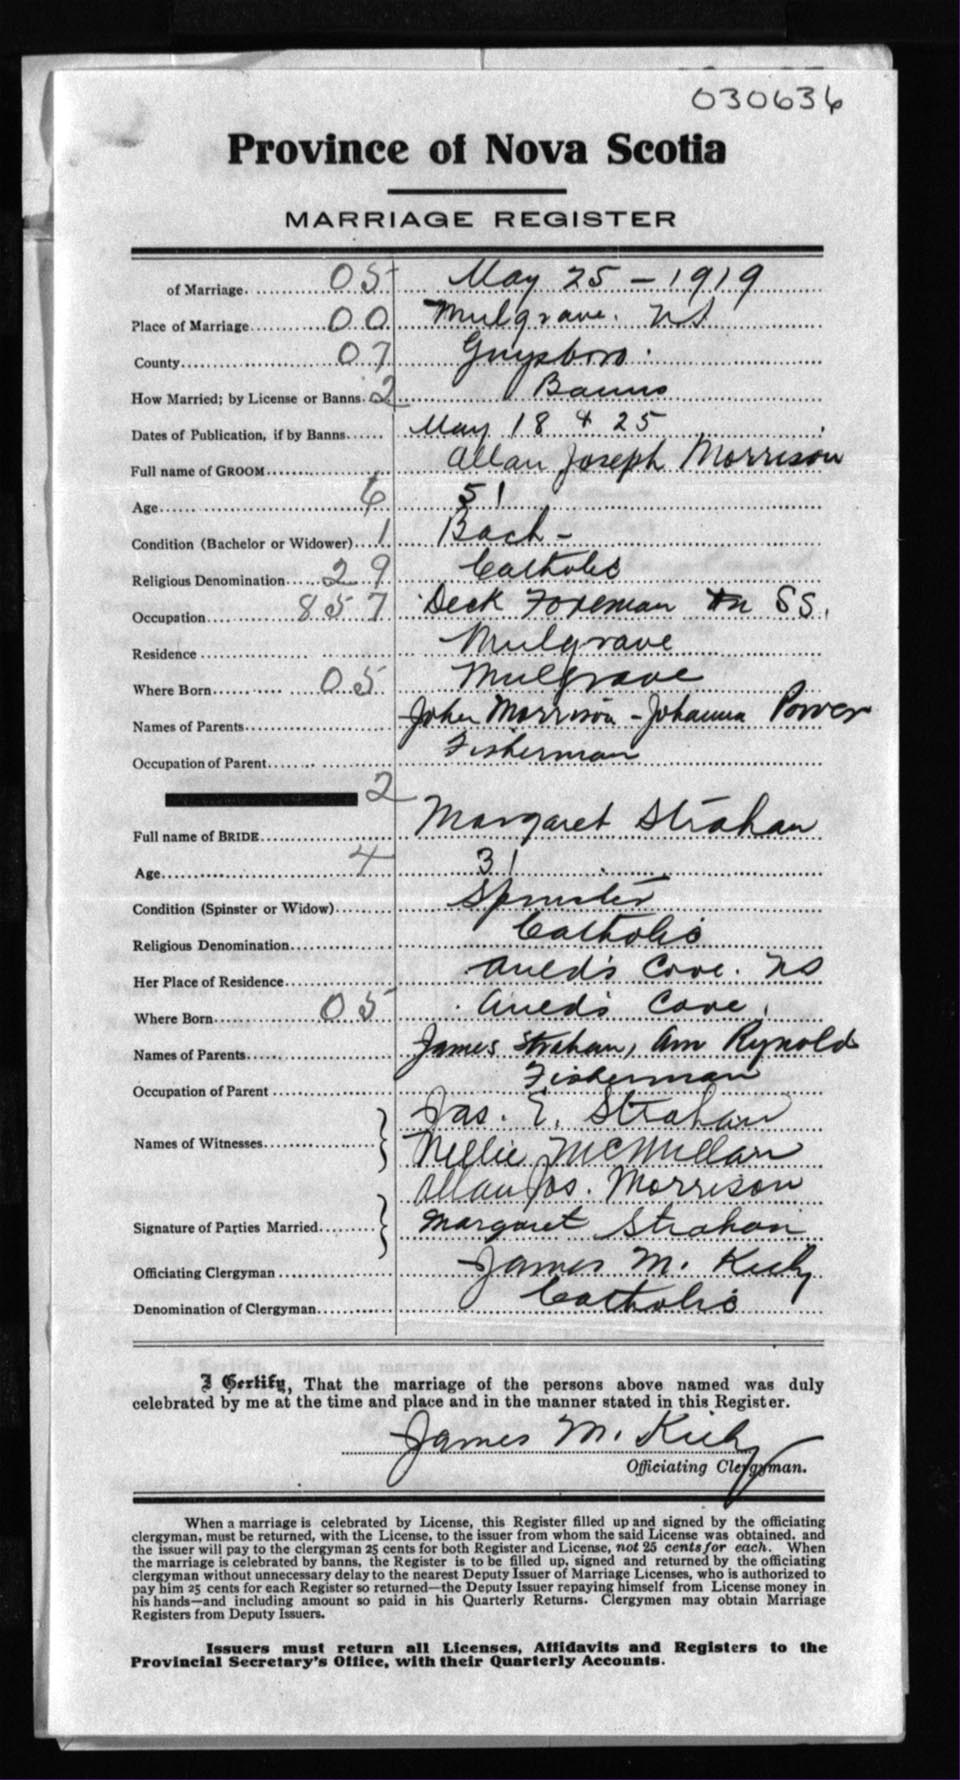 030636
Province of Nova Scotia
MARRIAGE REGISTER
of Marriage 05 May 25 - 1919
Place of Marriage 00 Mulgrave. NS
County 07 Guysboro.
How Married; by License or Banns. 2 Banns
Dates of Publication, if by Banns May 18 & 25
Full name of GROOM Allan Joseph Morrison
Age 6 51
Condition (Bachelor or Widower) 1 Bach -
Religious Denomination 29 Catholic
Occupation 857 Deck Foreman on SS.
Residence Mulgrave
Where Born 05 Mulgrave
Names of Parents John Morrison - Johanna Power
Occupation of Parent Fisherman
2
Full name of BRIDE Margaret Strahan
Age 4 31
Condition (Spinster or Widow) Spinster
Religious Denomination Catholic
Her Place of Residence Auld's Cove. NS
Where Born 05 Auld's Cove.
Names of Parents James Strahan, Ann Rynold
Occupation of Parent Fisherman
Jas. E. Strahan
Names of Witnesses } Nellie McMillan
Allan Jos. Morrison
Signature of Parties Married } Margaret Strahan
Officiating Clergyman James M. Kiely
Denomination of Clergyman Catholic
I Certify, That the marriage of the persons above named was duly
celebrated by me at the time and place and in the manner stated in this Register.
James M. Kiely
Officiating Clergyman.
When a marriage is celebrated by License, this Register filled up and signed by the officiating
clergyman, must be returned, with the License, to the issuer from whom the said License was obtained, and
the issuer will pay to the clergyman 25 cents for both Register and License, not 25 cents for each. When
the marriage is celebrated by banns, the Register is to be filled up, signed and returned by the officiating
clergyman without unnecessary delay to the nearest Deputy Issuer of Marriage Licenses, who is authorized to
pay him 25 cents for each Register so returned—the Deputy Issuer repaying himself from License money in
his hands—and including amount so paid in his Quarterly Returns. Clergymen may obtain Marriage
Registers from Deputy Issuers.
Issuers must return all Licenses, Affidavits and Registers to the
Provincial Secretary's Office, with their Quarterly Accounts.